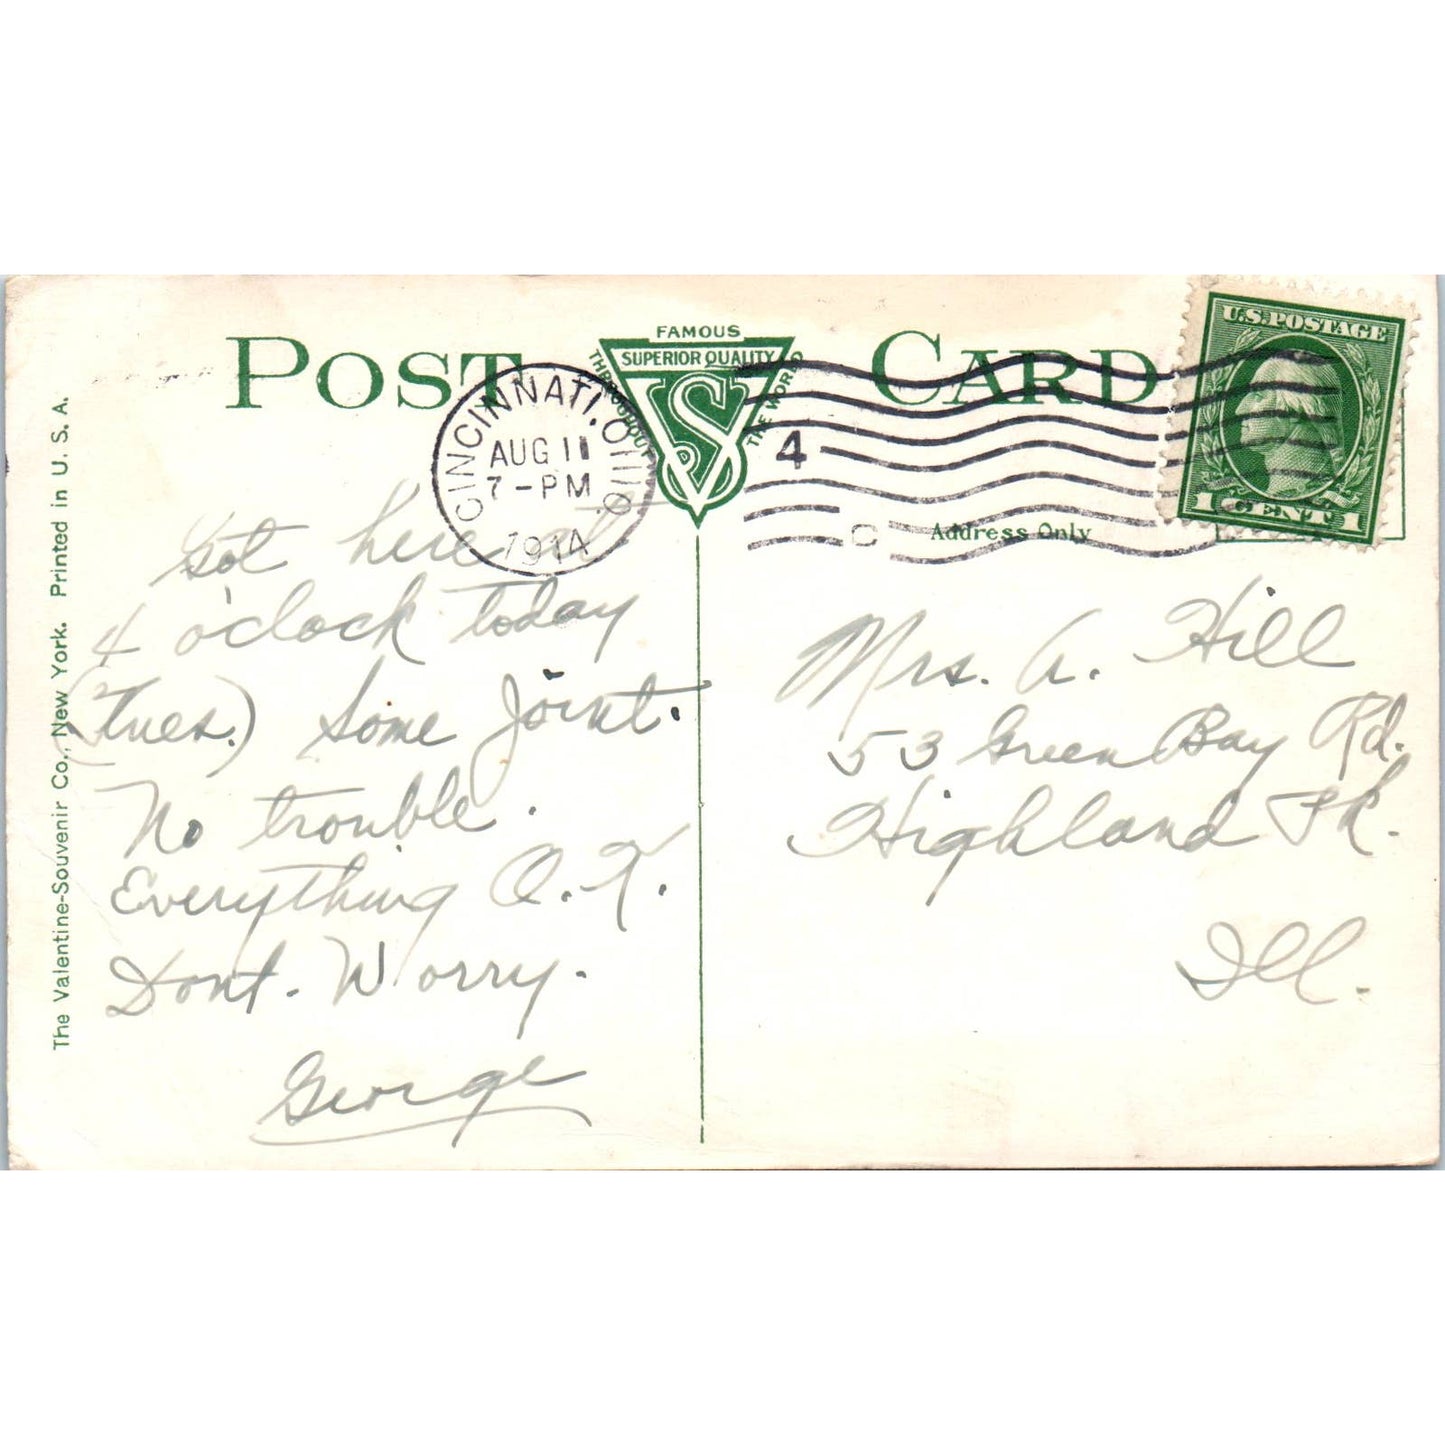 POST CARD
FAMOUS
SUPERIOR QUALITY
THROUGHOUT THE WORLD
VS
CINCINNATI, OHIO
AUG 11
7-PM
1914
4
C
U.S. POSTAGE
1 CENT 1
Address Only
Got here at
4 o'clock today
(Tues.) Some Joint.
No trouble.
Everything O.K.
Dont. Worry.
George
Mrs. A. Hill
53 Green Bay Rd.
Highland Pk.
Ill.
The Valentine-Souvenir Co., New York. Printed in U. S. A.